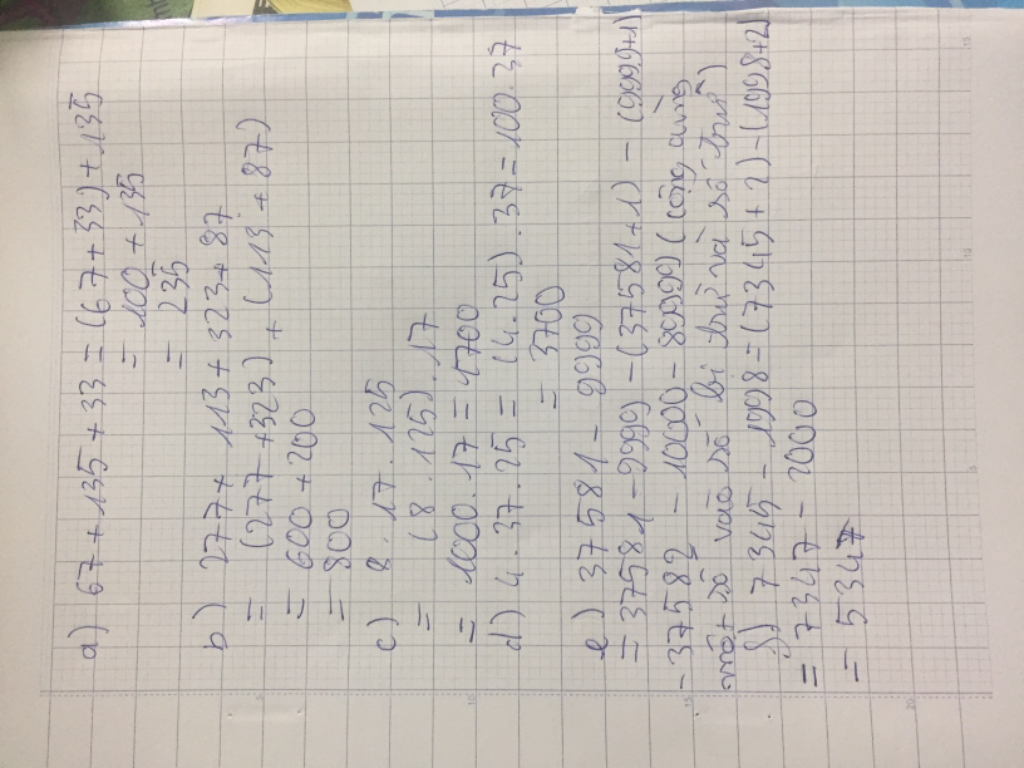 a) 67 + 135 + 33 = (67 + 33) + 135
= 100 + 135
= 235
b) 277 + 113 + 323 + 87
= (277 + 323) + (113 + 87)
= 600 + 200
= 800
c) 8 . 17 . 125
= (8 . 125) . 17
= 1000 . 17 = 1700
d) 4 . 37 . 25 = (4 . 25) . 37 = 100 . 37
= 3700
e) 37581 - 9999
= 37581 - 9999) - (37581 + 1) - (9999 + 1)
- 37582 - 10000 = 89999 (cộng cùng
một số vào số bị trừ và số trừ)
f) 7345 - 1998 = (7345 + 2) - (1998 + 2)
= 7347 - 2000
= 5347